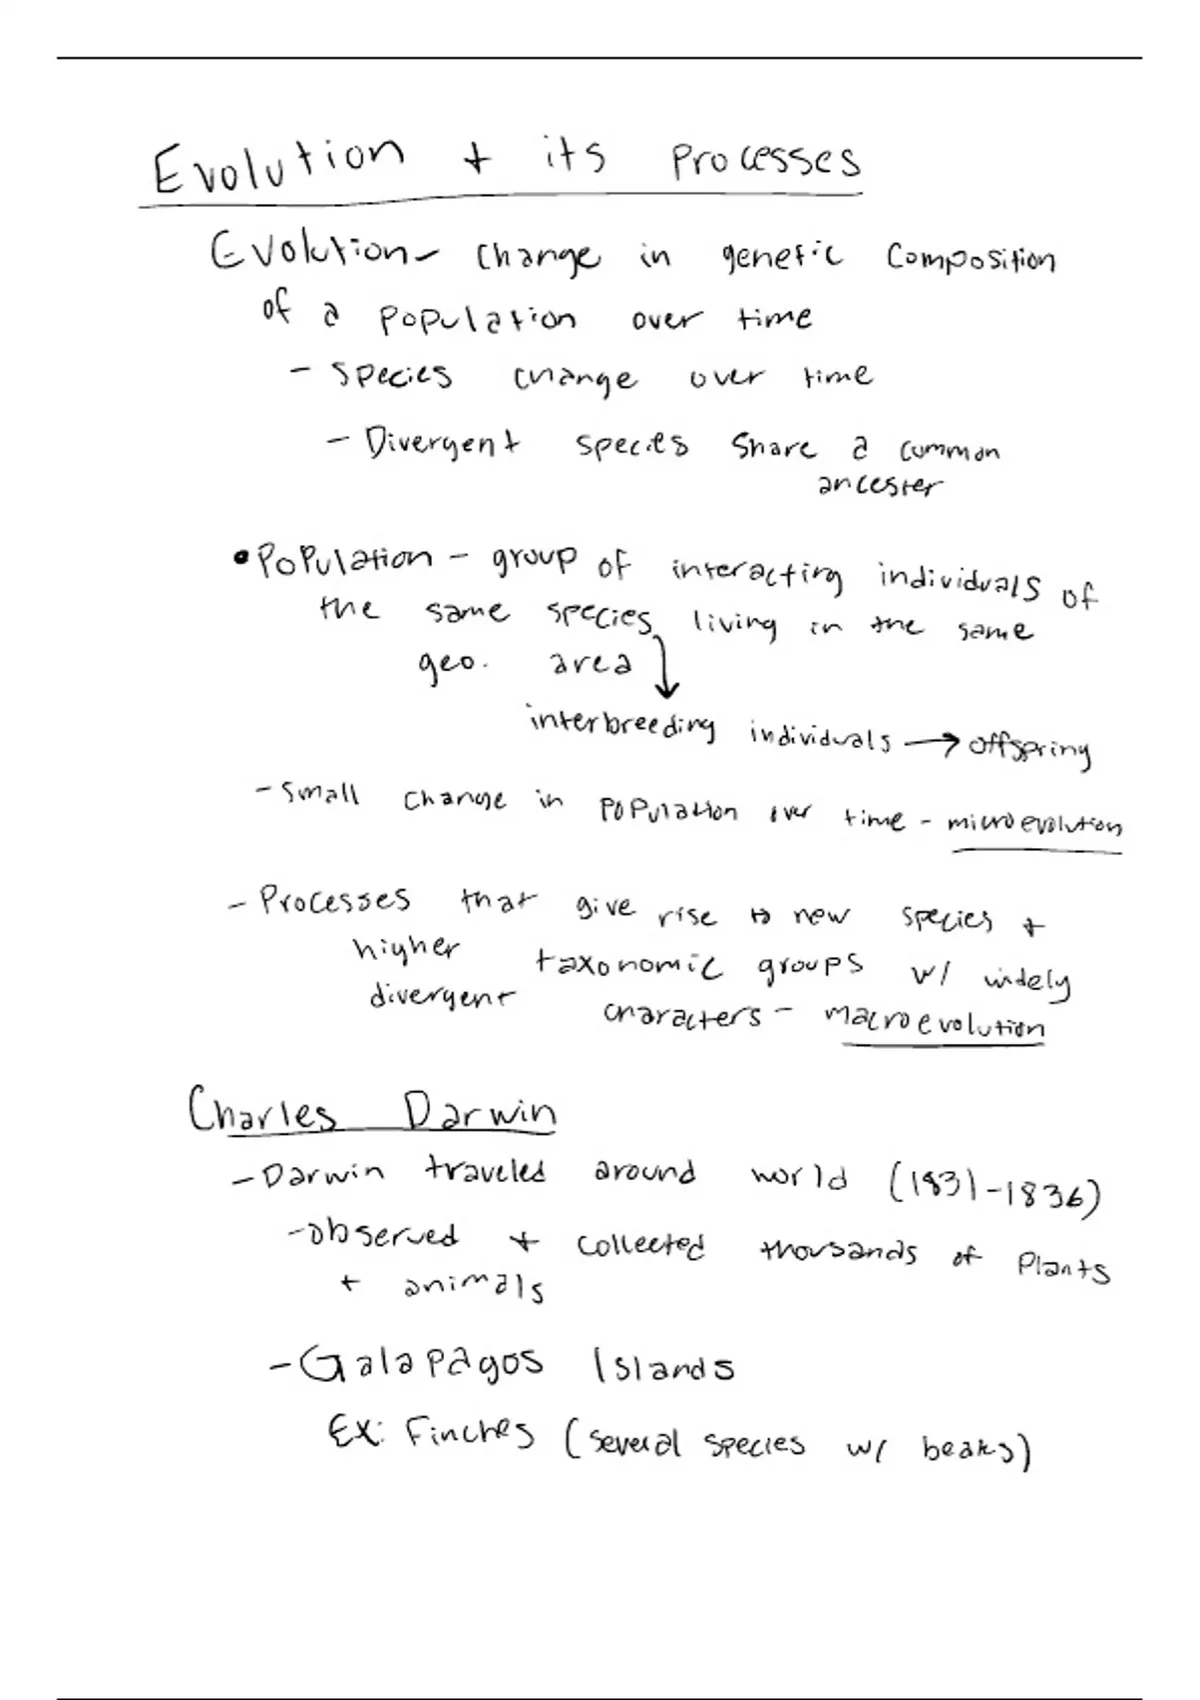 Evolution + its processes
Evolution - change in genetic composition
of a population over time
- species change over time
- Divergent species share a common
ancester
• Population - group of interacting individuals of
the same species living in the same
geo. area
interbreeding individuals → offspring
- small change in population over time - microevolution
- Processes that give rise to new species +
higher taxonomic groups w/ widely
divergent characters - macroevolution
Charles Darwin
- Darwin traveled around world (1831-1836)
- observed + collected thousands of plants
+ animals
- Galapagos Islands
Ex: Finches (several species w/ beaks)